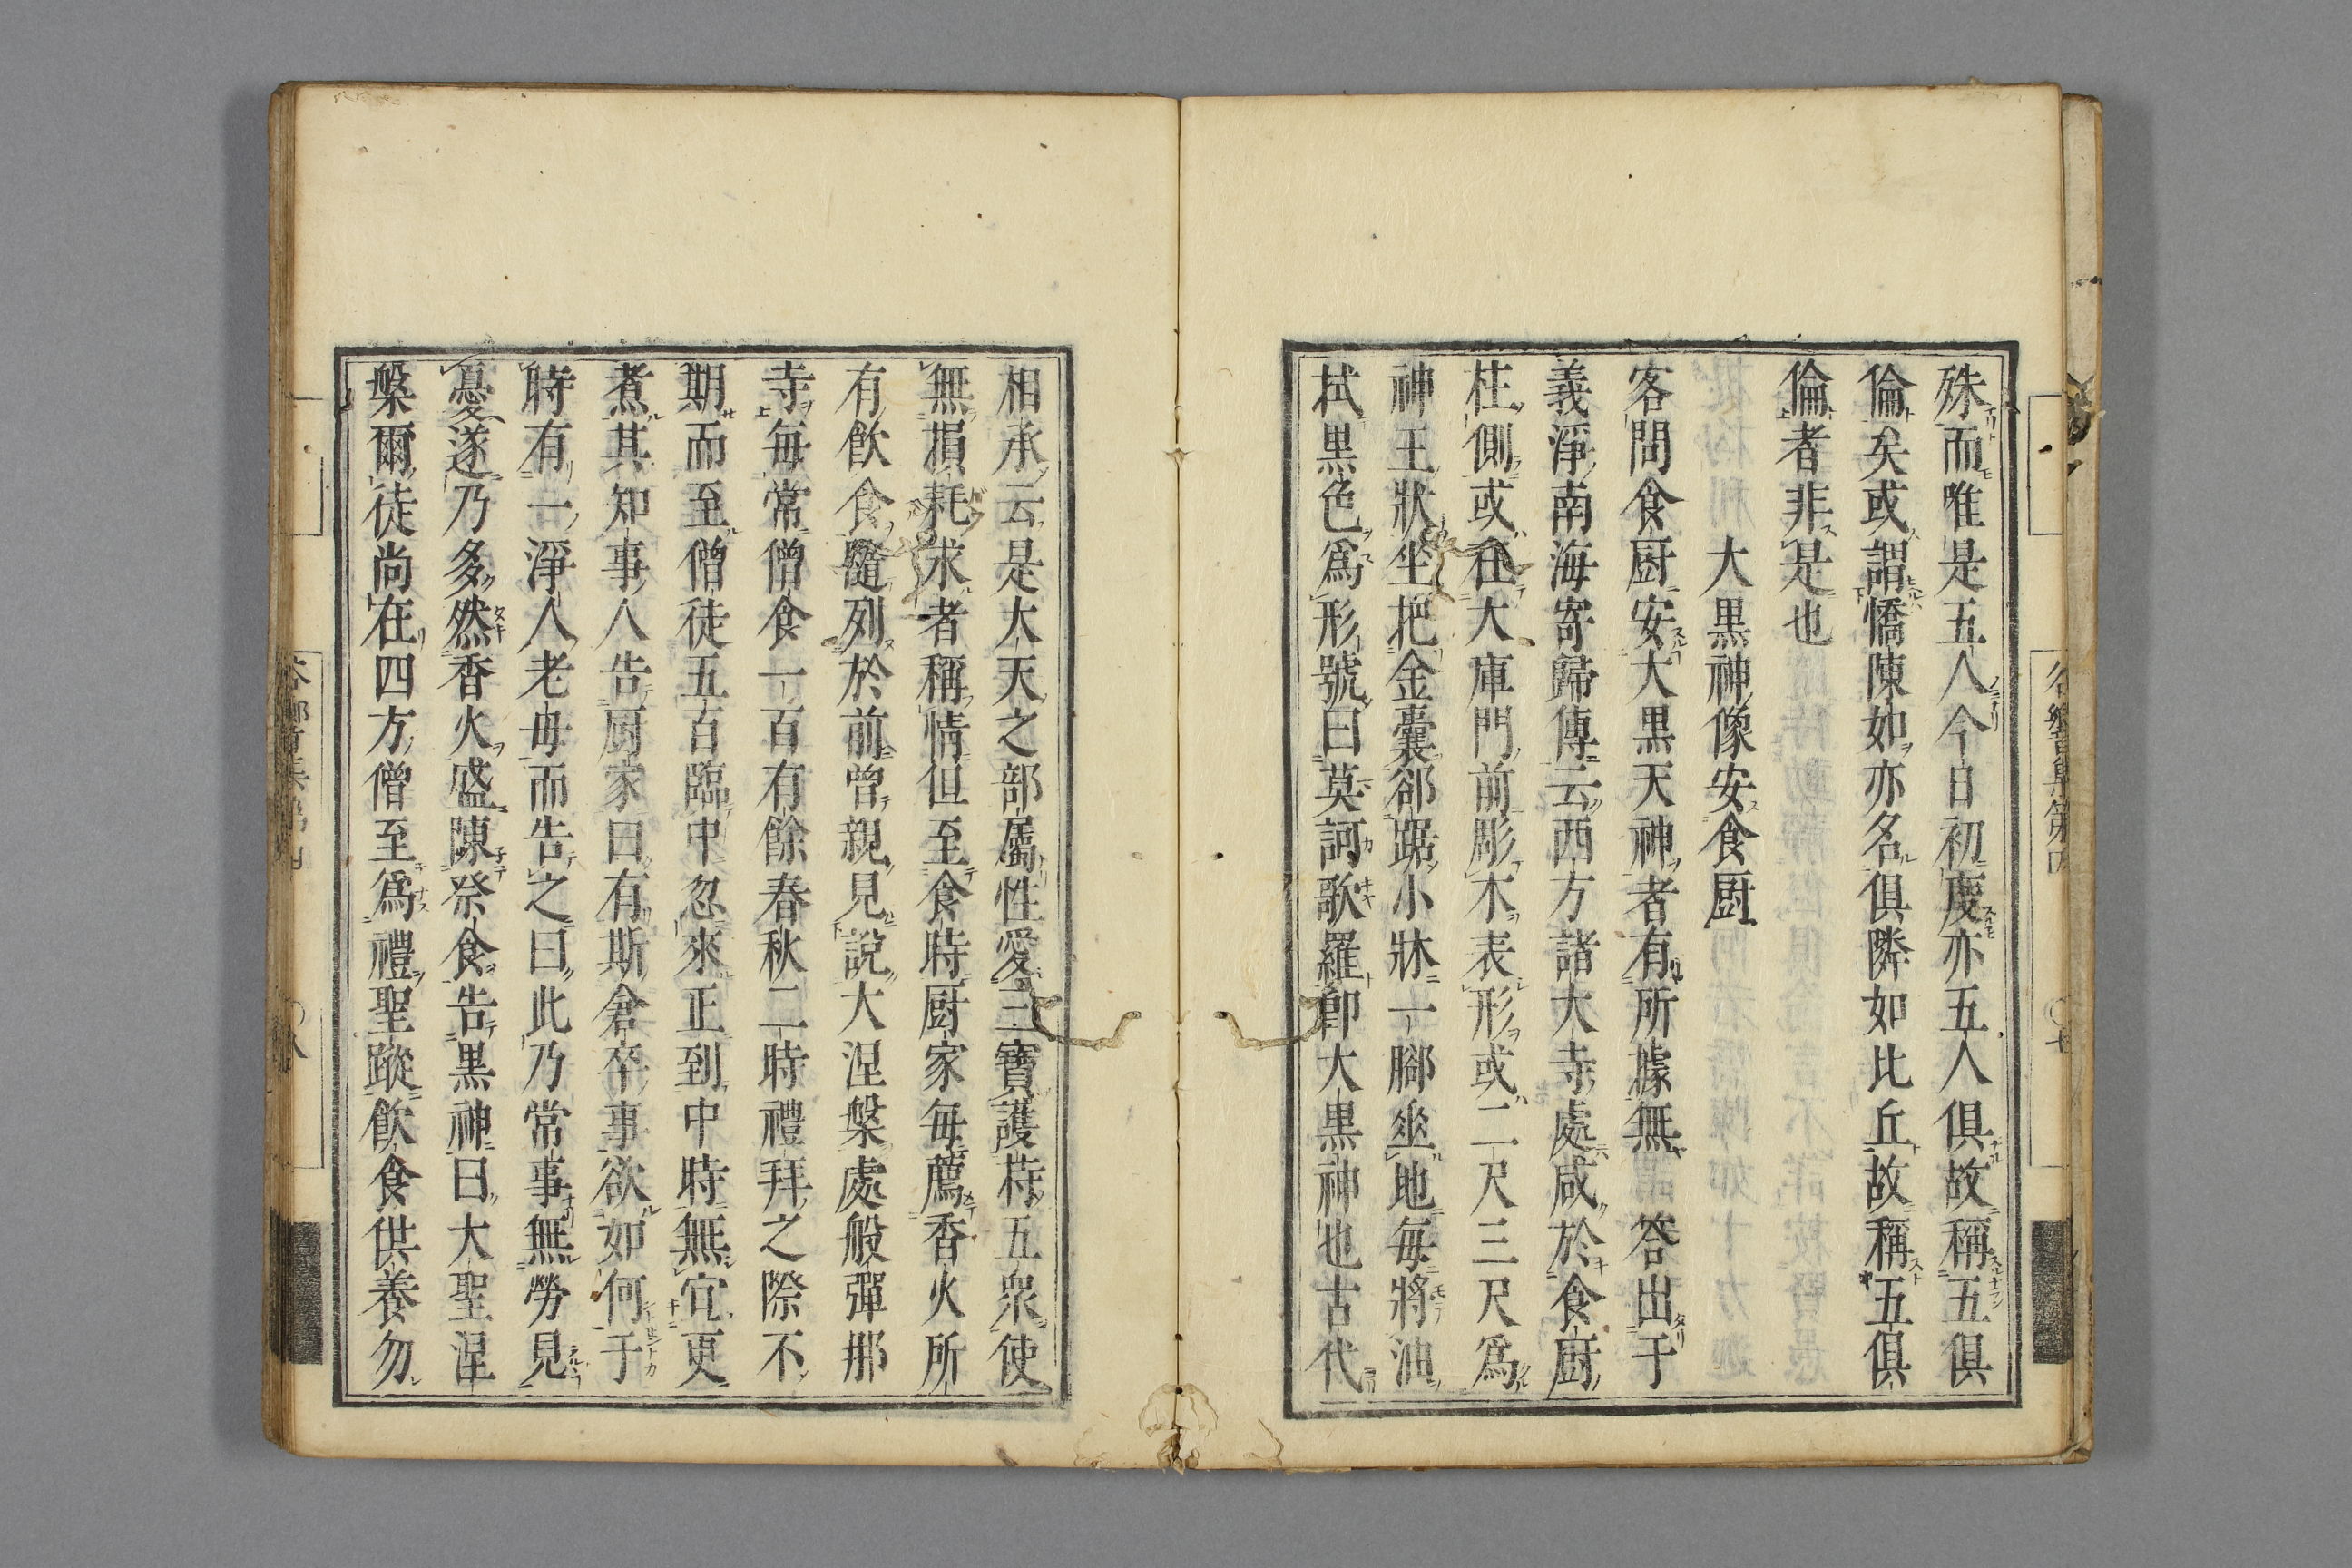 殊而唯是五人今日初度亦五人倶故稱五倶
倫矣或謂憍陳如亦名倶隣如比丘故稱五倶
倫者非是也
大黒神像安食厨
客問食厨安大黒天神者有所據無答出于
義淨南海寄歸傳云西方諸大寺處咸於食厨
柱側或在大庫門前彫木表形或二尺三尺爲
神王狀坐把金嚢郤踞小牀一脚垂地毎將油
拭黒色爲形號曰莫訶歌羅卽大黒神也古代
相承云是大天之部屬性愛三寶護持五衆使
無損耗求者稱情但至食時厨家毎薦香火所
有飲食隨列於前曽親見説大涅槃處般彈那
寺毎常僧食一百有餘春秋二時禮拜之際不
期而至僧徒五百臨中忽來正到中時無宜更
煮其知事人告厨家曰有斯倉卒事欲如何于
時有一淨人老母而告之曰此乃常事無勞見
憂遂乃多然香火盛陳祭食告黒神曰大聖涅
槃爾徒尚在四方僧至爲禮聖蹤飲食供養勿